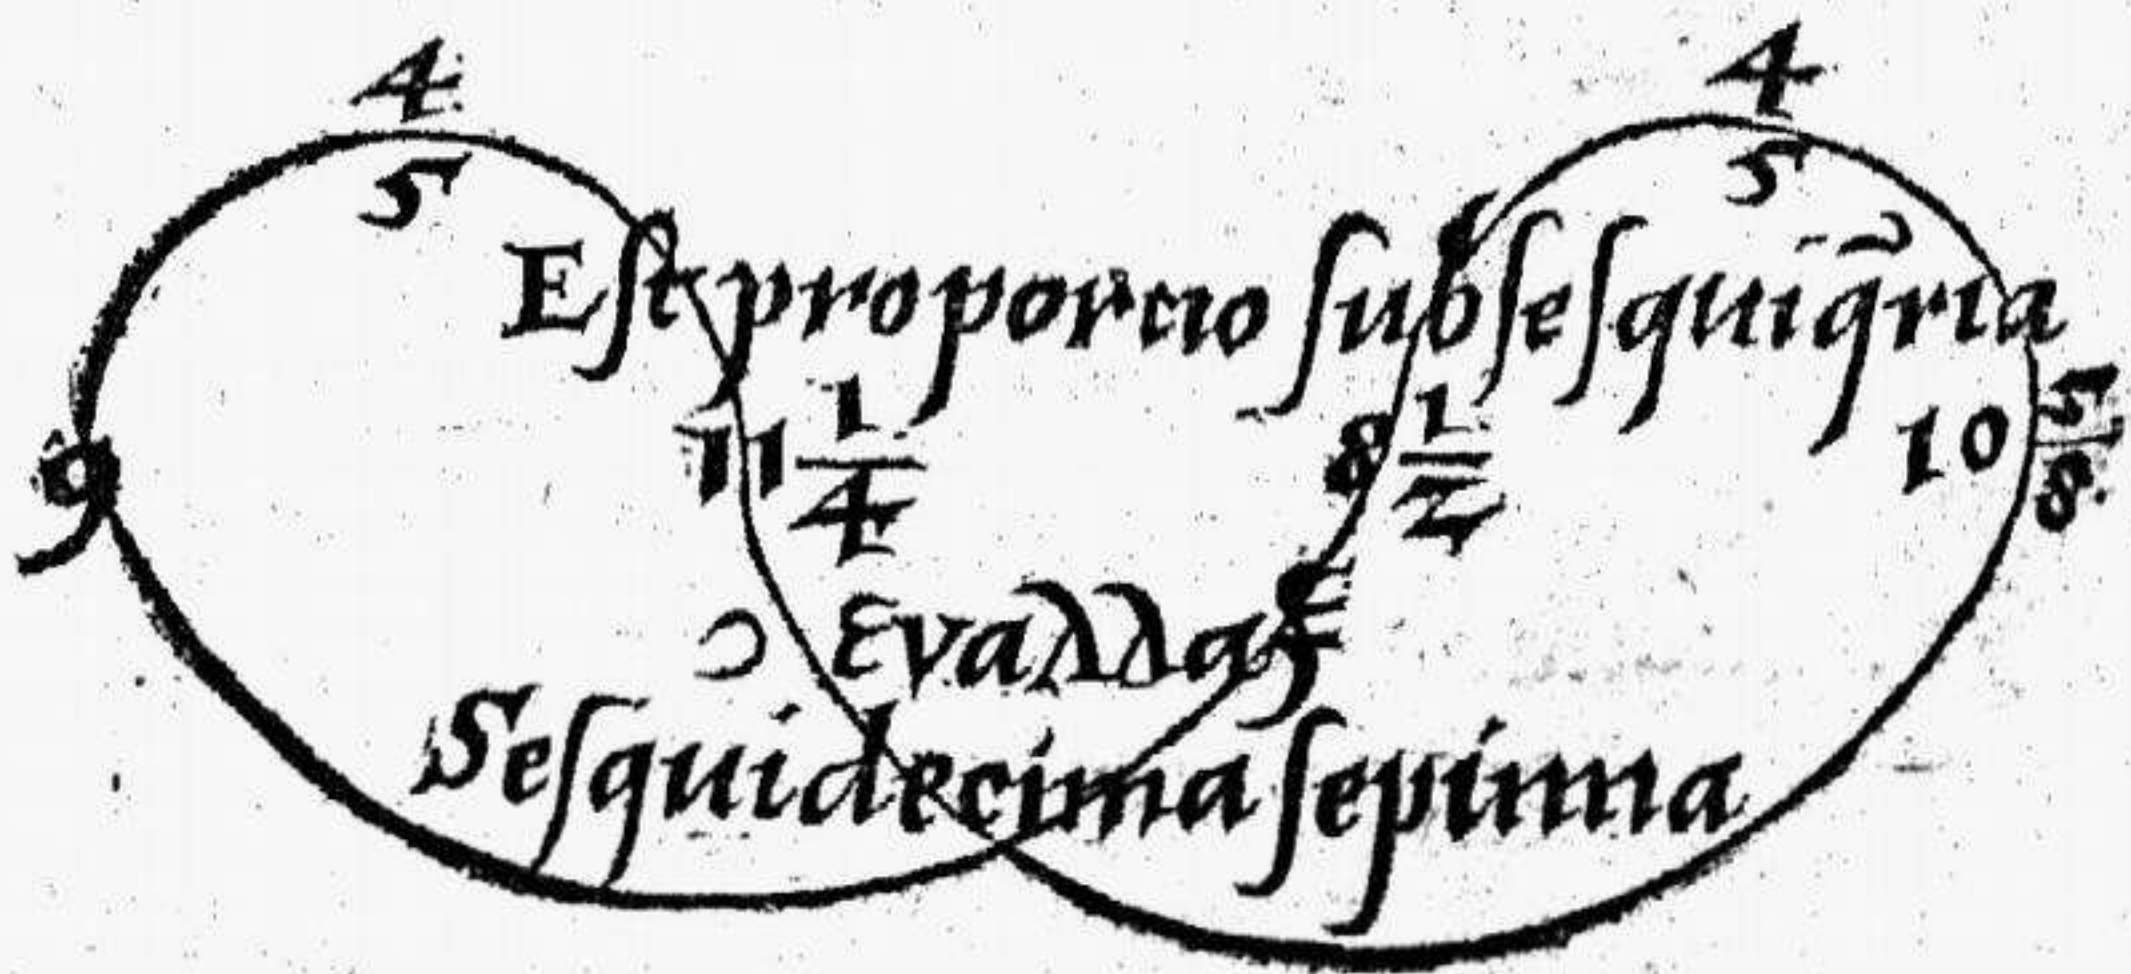 4 4
5 5
Eſt proporcio ſubſeſquiq̄ria
9 11 1/4 8 1/2 10 5/8
εναλλαξ
Seſquidecima ſeptima